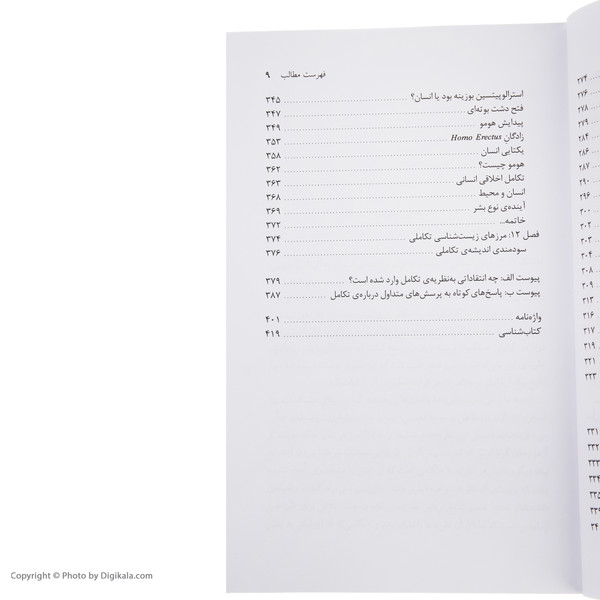 فهرست مطالب ۹
استرالوپیتسین بوزینه بود یا انسان؟ ۳۴۵
فتح دشت بوته‌ای ۳۴۷
پیدایش هومو ۳۴۹
زادگان Homo Erectus ۳۵۳
یکتایی انسان ۳۵۸
هومو چیست؟ ۳۶۲
تکامل اخلاقی انسانی ۳۶۳
انسان و محیط ۳۶۸
آینده‌ی نوع بشر ۳۶۹
خاتمه... ۳۷۲
فصل ۱۲: مرزهای زیست‌شناسی تکاملی ۳۷۴
سودمندی اندیشه‌ی تکاملی ۳۷۶
پیوست الف: چه انتقاداتی به‌نظریه‌ی تکامل وارد شده است؟ ۳۷۹
پیوست ب: پاسخ‌های کوتاه به پرسش‌های متداول درباره‌ی تکامل ۳۸۷
واژه‌نامه ۴۰۱
کتاب‌شناسی ۴۱۹
۲۷۴
۲۷۶
۲۷۸
۲۷۹
۲۸۴
۲۸۶
۲۸۷
۲۹۰
۲۹۶
۳۰۰
۳۰۲
۳۰۳
۳۰۴
۳۰۸
۳۰۹
۳۱۳
۳۱۶
۳۱۷
۳۱۹
۳۲۱
۳۲۳
۳۳۱
۳۳۲
۳۳۳
۳۳۴
Copyright © Photo by Digikala.com